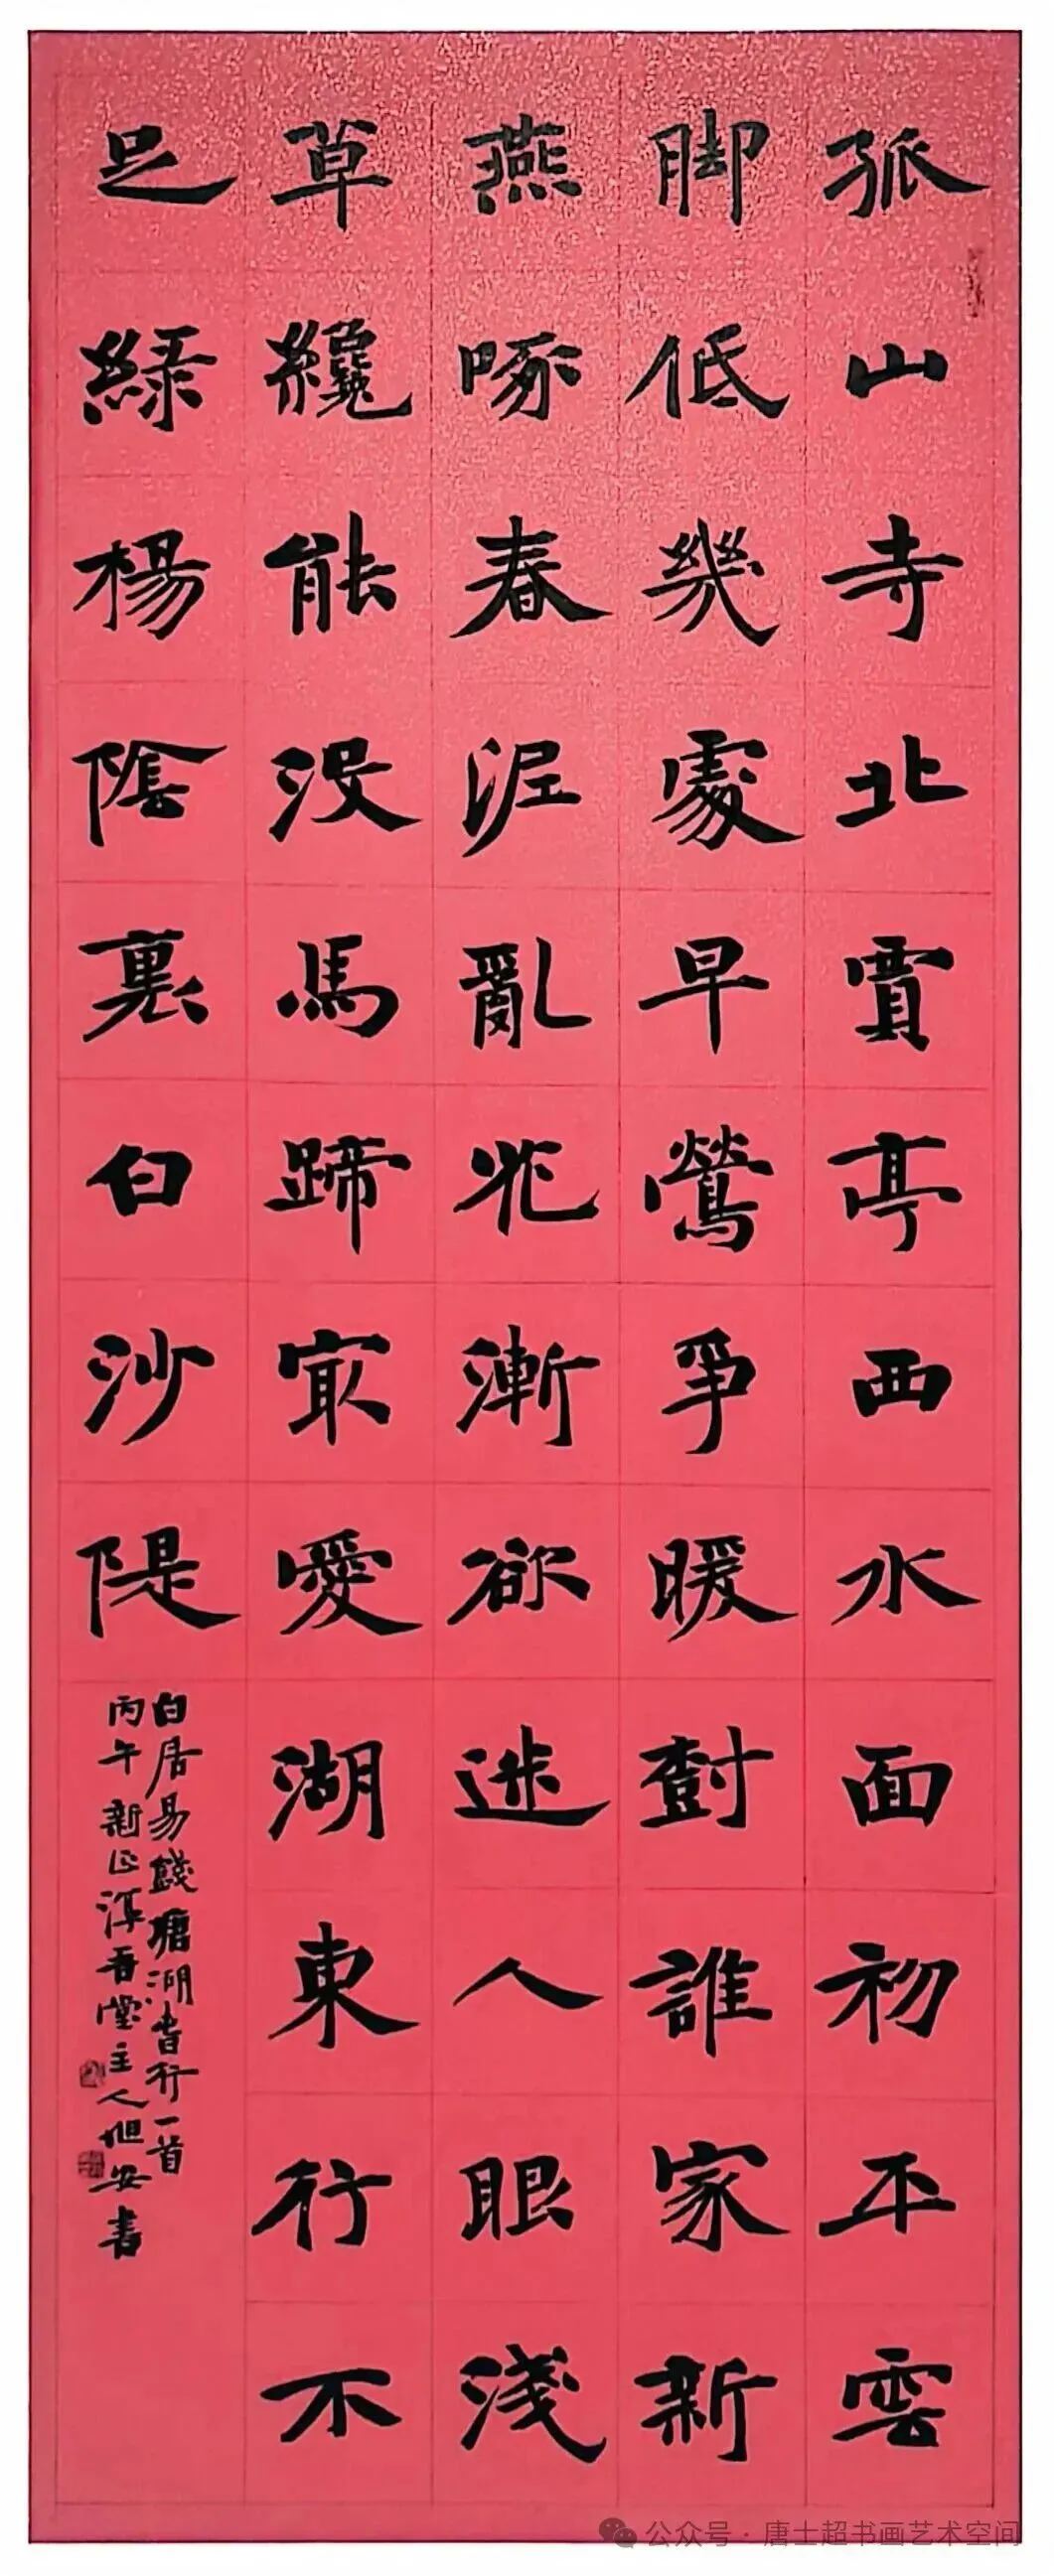 孤山寺北賈亭西水面初平雲
脚低幾處早鶯爭暖對誰家新
燕啄春泥亂花漸欲迷人眼淺
草纔能没馬蹄寂愛湖東行不
足綠楊陰裏白沙隄
白居易錢塘湖春行一首
丙午新正淳吾堂主人旭安書
公众号·唐士超书画艺术空间